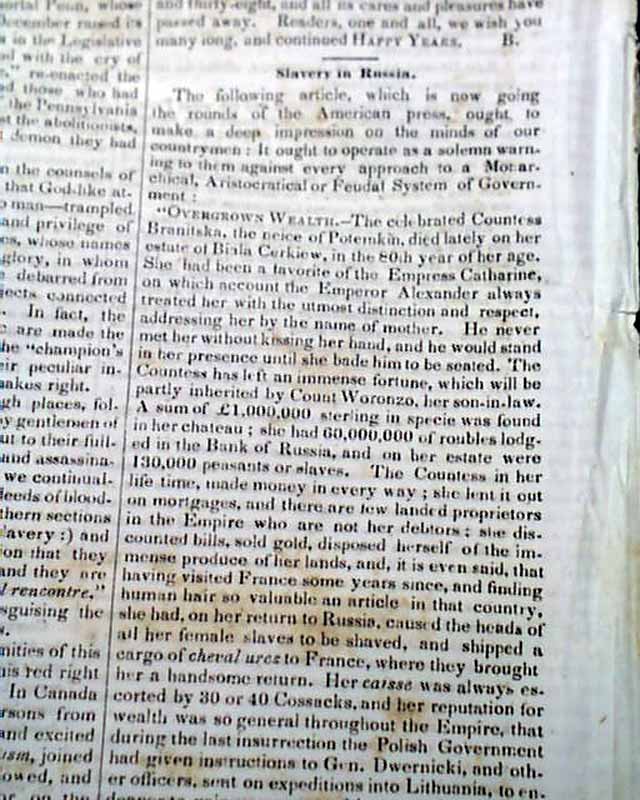 ortal Penn, whose
December raised its
s in the Legislative
d with the cry of
re-enacted the
d those who had
the Pennsylvania
st the abolitionists,
demon they had
n the counsels of
that God-like at-
o man—trampled
and privilege of
es, whose names
glory, in whom
debarred from
jects connected
In fact, the
e are made the
he "champion's
eir peculiar in-
makes right.
gh places, fol-
y gentlemen of
ut to their full-
and assassina-
we continual-
deeds of blood-
thern sections
lavery :) and
ion that they
and they are
l rencontre."
sguising the
s.
nities of this
his red right
In Canada
rsons from
and excited
ism, joined
owed, and
or on the
and thirty-eight, and all its cares and pleasures have
passed away. Readers, one and all, we wish you
many long, and continued HAPPY YEARS. B.
Slavery in Russia.
The following article, which is now going
the rounds of the American press, ought to
make a deep impression on the minds of our
countrymen : It ought to operate as a solemn warn-
ing to them against every approach to a Monar-
chical, Aristocratical or Feudal System of Govern-
ment :
"OVERGROWN WEALTH.—The celebrated Countess
Branitska, the neice of Potemkin, died lately on her
estate of Biala Cerkiew, in the 80th year of her age.
She had been a favorite of the Empress Catharine,
on which account the Emperor Alexander always
treated her with the utmost distinction and respect,
addressing her by the name of mother. He never
met her without kissing her hand, and he would stand
in her presence until she bade him to be seated. The
Countess has left an immense fortune, which will be
partly inherited by Count Woronzo, her son-in-law.
A sum of £1,000,000 sterling in specie was found
in her chateau ; she had 60,000,000 of roubles lodg-
ed in the Bank of Russia, and on her estate were
130,000 peasants or slaves. The Countess in her
life time, made money in every way ; she lent it out
on mortgages, and there are few landed proprietors
in the Empire who are not her debtors ; she dis-
counted bills, sold gold, disposed herself of the im-
mense produce of her lands, and, it is even said, that
having visited France some years since, and finding
human hair so valuable an article in that country,
she had, on her return to Russia, caused the heads of
all her female slaves to be shaved, and shipped a
cargo of cheval ures to France, where they brought
her a handsome return. Her caisse was always es-
corted by 30 or 40 Cossacks, and her reputation for
wealth was so general throughout the Empire, that
during the last insurrection the Polish Government
had given instructions to Gen. Dwernicki, and oth-
er officers, sent on expeditions into Lithuania, to en-